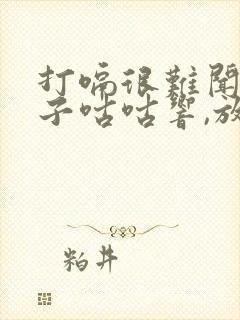 打嗝很難聞
子咕咕響,放
粕井